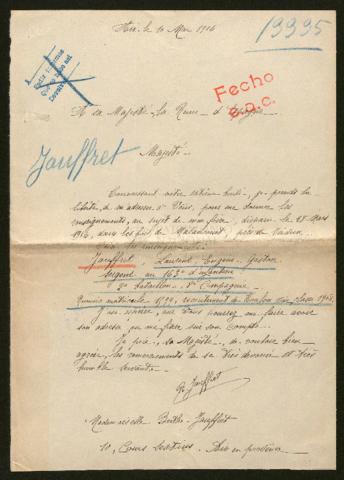 Aix, le 10 Mai 1916
19995
Fecho
e.a.c.
A sa Majesté La Reine d'Espagne
Jauffret
Majesté
Connaissant votre extrême bonté, je prends la
liberté, de m'adresser à Vous, pour me donner les
renseignements, au sujet de mon frère, disparu le 28 Mars
1916, dans les bois de Malancourt, près de Verdun.
Voici les renseignements:
Jauffret, Laurent, Eugène, Gaston
Sergent au 163e d'infanterie
2e bataillon, 5e Compagnie
Numéro matricule 1299, recrutement de Toulon
que Vous pourrez me faire avoir
son adresse ou me fixer sur son compte.
Je prie, sa Majesté, de vouloir bien
agréer, les remerciements de sa très dévouée et très
humble servante.
B. Jauffret
Mademoiselle Berthe Jauffret
10, Cours Sextius. Aix en provence